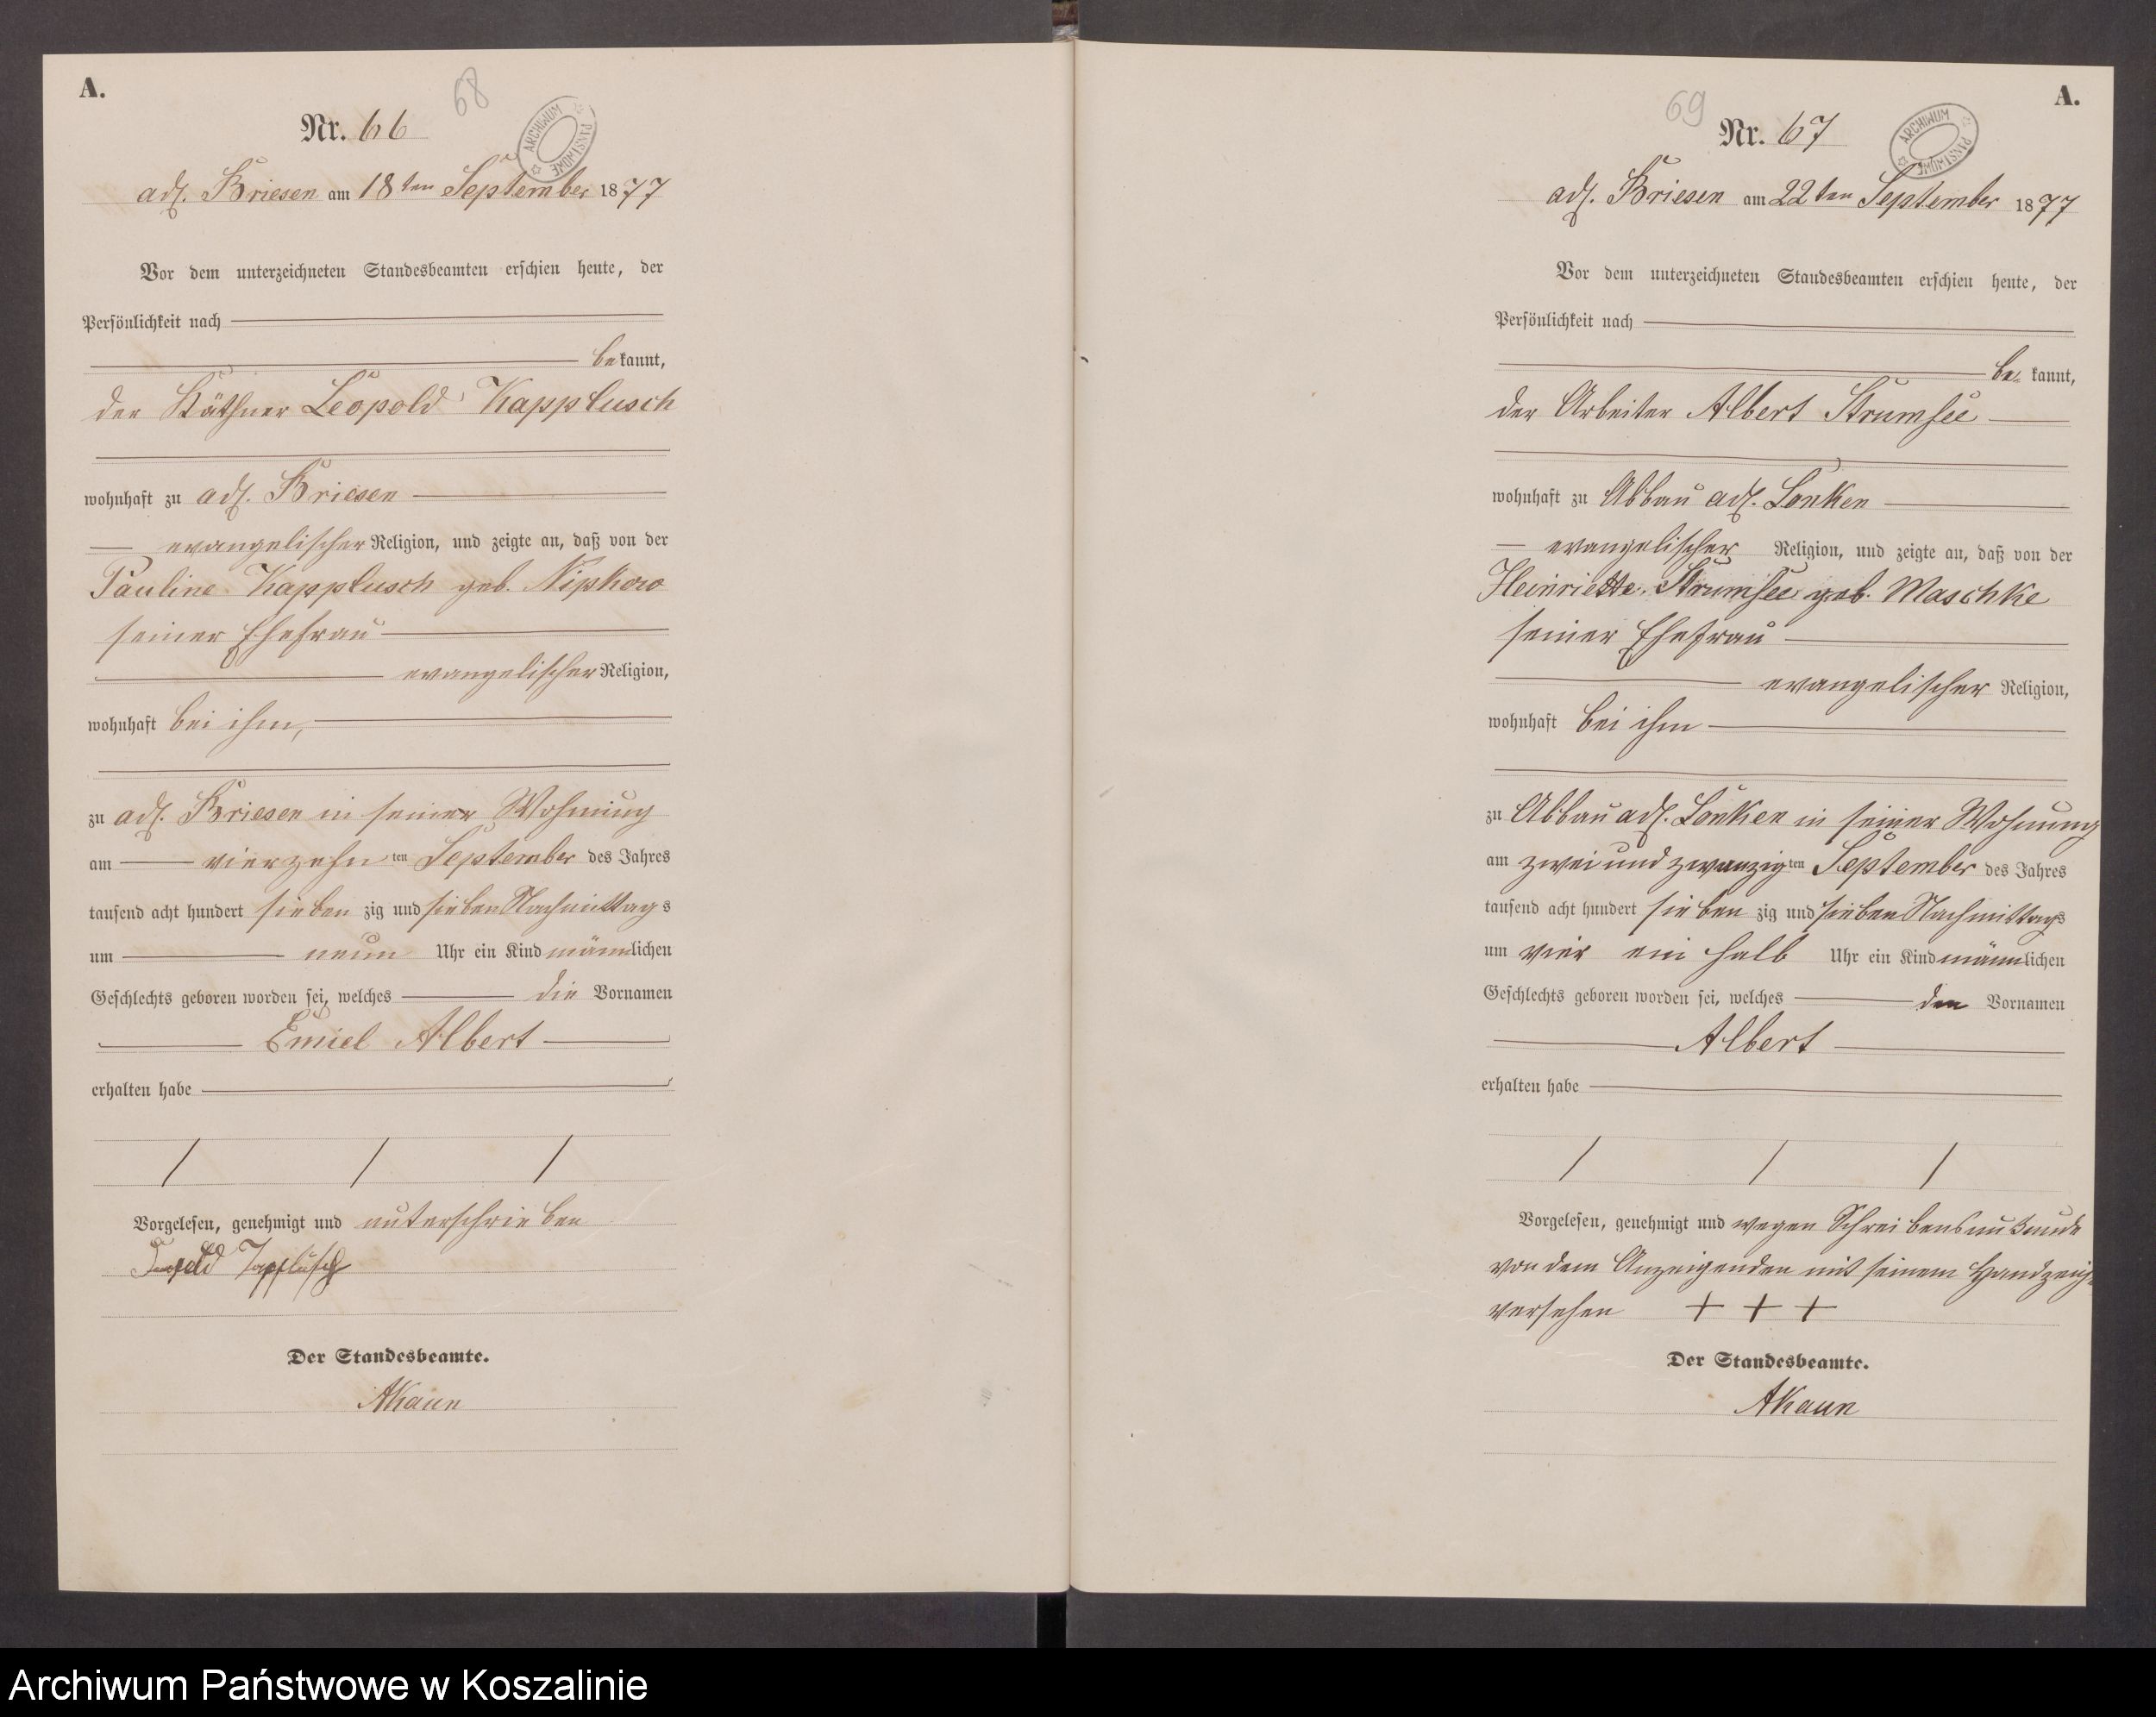 A.
68
Nr. 66
ARCHIWUM PAŃSTWOWE
adl. Briesen am 18ten September 1877
Vor dem unterzeichneten Standesbeamten erschien heute, der
Persönlichkeit nach
bekannt,
der Käthner Leopold Kapplusch
wohnhaft zu adl. Briesen
evangelischer Religion, und zeigte an, daß von der
Pauline Kapplusch geb. Nipkow
seiner Ehefrau
evangelischer Religion,
wohnhaft bei ihm,
zu adl. Briesen in seiner Wohnung
am vierzehnten September des Jahres
tausend acht hundert siebenzig und sieben Nachmittags
um neun Uhr ein Kind männlichen
Geschlechts geboren worden sei, welches die Vornamen
Emiel Albert
erhalten habe
Vorgelesen, genehmigt und unterschrieben
Der Standesbeamte.
AKaun
A.
69
Nr. 67
ARCHIWUM PAŃSTWOWE
adl. Briesen am 22ten September 1877
Vor dem unterzeichneten Standesbeamten erschien heute, der
Persönlichkeit nach
be kannt,
der Arbeiter Albert Strumsee
wohnhaft zu Abbau adl. Lonken
evangelischer Religion, und zeigte an, daß von der
Heinriette Strumsee geb. Maschke
seiner Ehefrau
evangelischer Religion,
wohnhaft bei ihm
zu Abbau adl. Lonken in seiner Wohnung
am zwei und zwanzigten September des Jahres
tausend acht hundert siebenzig und sieben Nachmittags
um vier ein halb Uhr ein Kind männlichen
Geschlechts geboren worden sei, welches den Vornamen
Albert
erhalten habe
Vorgelesen, genehmigt und wegen Schreibensunkunde
von dem Anzeigenden mit seinem Handzeich
versehen + + +
Der Standesbeamte.
AKaun
Archiwum Państwowe w Koszalinie